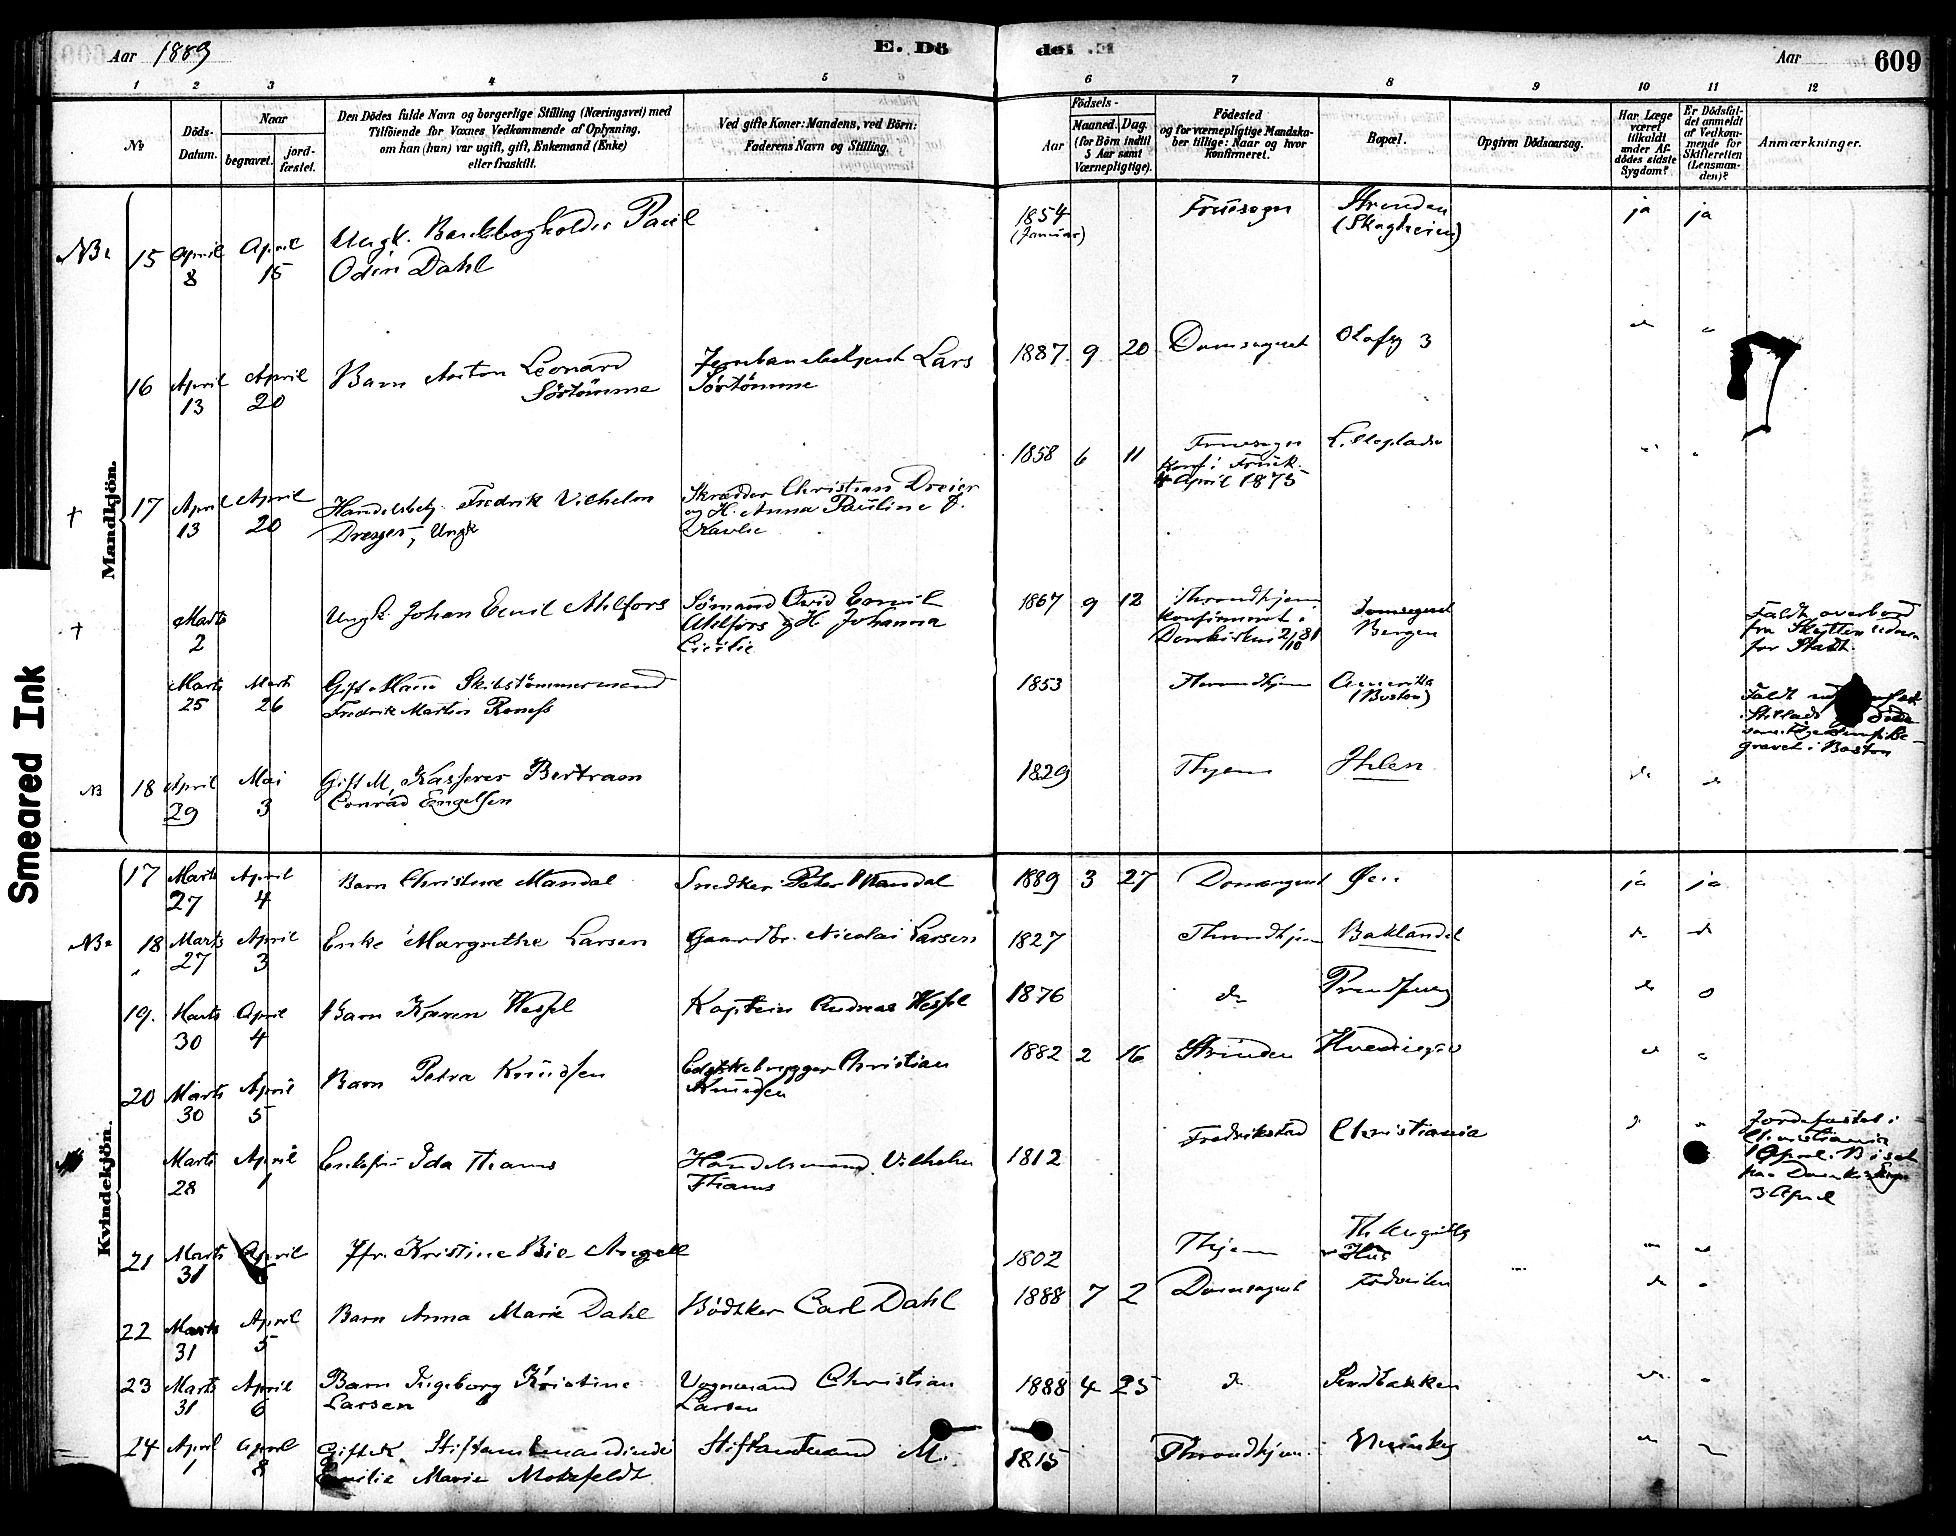 Aar 1889
E. Dö
de. E
Aar
609
1 2 3 4 5 6 7 8 9 10 11 12
No
Döds-
Datum.
Naar
begravet.
jord-
fæstet.
Den Dödes fulde Navn og borgerlige Stilling (Næringsvei) med
Tilföiende for Voxnes Vedkommende af Oplysning,
om han (hun) var ugift, gift, Enkemand (Enke)
eller fraskilt.
Ved gifte Koner: Mandens, ved Börn:
Faderens Navn og Stilling.
Födsels-
Aar
Maaned. Dag.
(for Börn indtil
5 Aar samt
Værnepligtige).
Födested
og for værnepligtige Mandska-
ber tillige: Naar og hvor
Konfirmeret.
Bopæl.
Opgiven Dödsaarsag.
Har Læge
været
tilkaldt
under Af-
dödes sidste
Sygdom?
Er Dödsfal-
det anmeldt
af Vedkom-
mende for
Skifteretten
(Lensman-
den)?
Anmærkninger.
Smeared Ink
Mandkjön.
NB 15 April 8 April 15 Ungk. Bankbogholder Paul
Odin Dahl
1854
(Januar)
Fruesogn Strinden
(Skagheim) ja ja
16 April 13 April 20 Barn Anton Leonard
Sörtömme
Jernbanebetjent Lars
Sörtömme
1887 9 20 Domsognet Olafsg 3
† 17 April 13 April 20 Handelsbetj. Fredrik Vilhelm
Dreyer, Ungk
Skrædder Christian Dreier
og H. Anna Pauline J.
1858 6 11 Fruesogn
Konf i Fruek.
April 1875
† Marts 2 Ungk. Johan Emil Ahlfors
Sömand Ovid Emil
Ahlfors og H. Johanna
Cicilie
1867 9 12 Throndhjem
Konfirmeret i
Domkirken 2/10 81
Domsognet
Bergen
Faldt overbord
fra Skytten udenfor
for Stadt.
Marts 25 Marts 26 Gift Mand Skibstömmermand
Fredrik Martin
1853 Throndhjem Amerika
(Boston)
Faldt
gravet i Boston
NB 18 April 29 Mai 3 Gift M, Kasserer Bertram
Conrad Engelsen
1829 Thjem Ihlen do do
Kvindekjön.
17 Marts 27 April 4 Barn Christine Mandal Snedker Peter Mandal 1889 3 27 Domsognet Öen ja ja
NB 18 Marts 27 April 3 Enke Margrethe Larsen Gaardbr. Nicolai Larsen 1827 Throndhjem Baklandet do do
19. Marts 30 April 4 Barn Karen Wessel Kaptein Andreas Wessel 1876 do do
20 Marts 30 April 5 Barn Petra Knudsen Christian
Knudsen
1882 2 16 Strinden
Marts 28 April 1 Enkefru Ida Thams Handelsmand Vilhelm
Thams
1812 Fredrikstad Christiania
Jordfæstet i
Christiania
1 April. Bisat
fra Domkirken
3 April
21 Marts 31 April Jfr. Kristine Bie Angell 1802 Thjem Th. Angells
Hus
22 Marts 31 April 5 Barn Anna Marie Dahl Bödtker Carl Dahl 1888 7 2 Domsognet
23 Marts 31 April 6 Barn Ingeborg Kristine
Larsen
Vognmand Christian
Larsen
1888 4 25 do Sandbakken
24 April 1 April 8 Gift K. Stiftamtmandinde
Emilie Marie Motzfeldt
Stiftamtmand M.
1815 Throndhjem